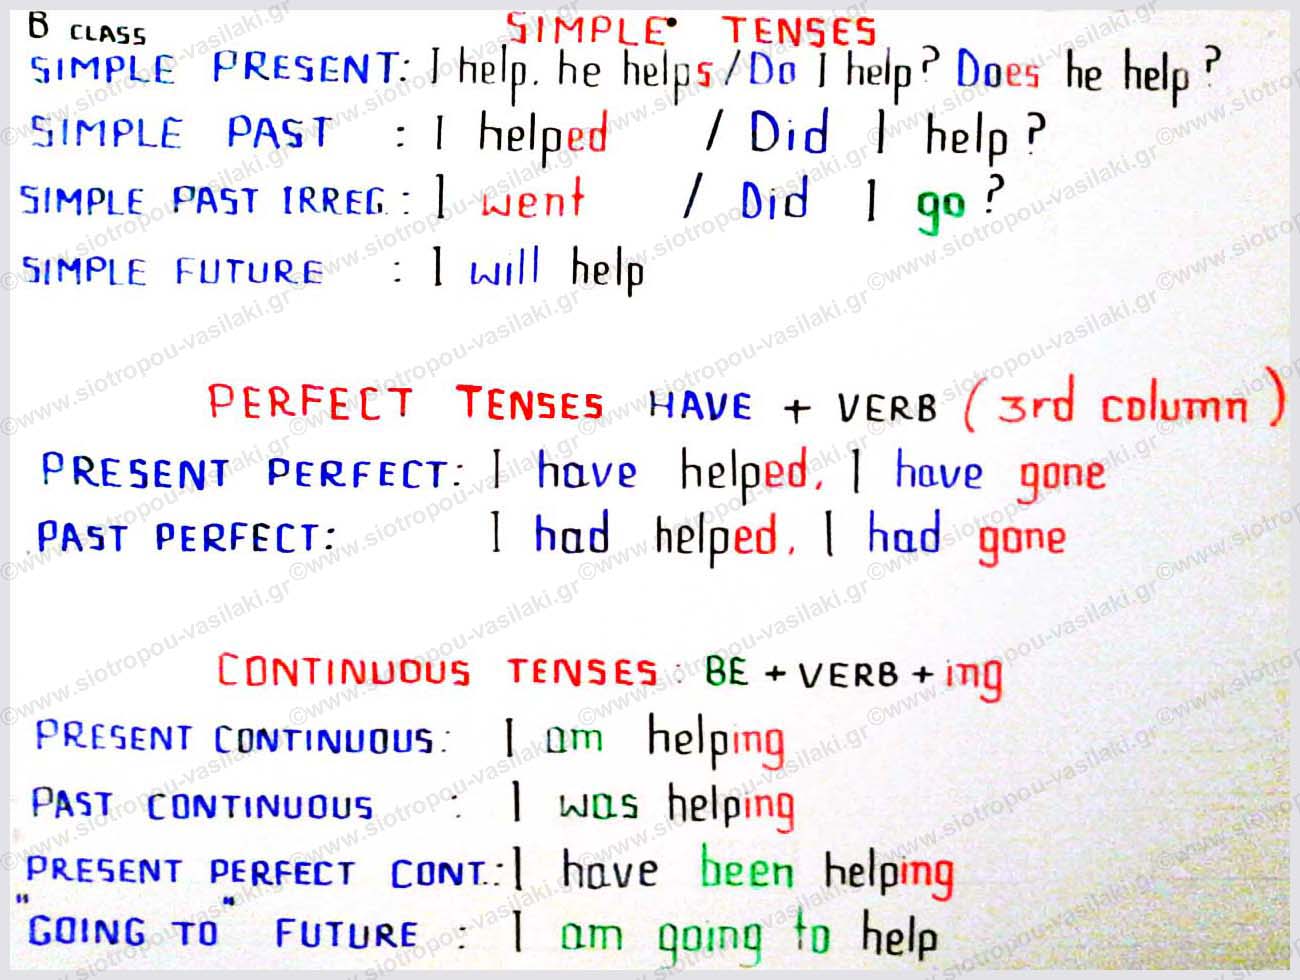 B CLASS
SIMPLE TENSES
SIMPLE PRESENT: I help. he helps/Do I help? Does he help?
SIMPLE PAST : I helped / Did I help?
SIMPLE PAST IRREG.: I went / Did I go?
SIMPLE FUTURE : I will help
PERFECT TENSES HAVE + VERB (3rd column)
PRESENT PERFECT: I have helped, I have gone
PAST PERFECT: I had helped, I had gone
CONTINUOUS TENSES: BE + VERB + ing
PRESENT CONTINUOUS: I am helping
PAST CONTINUOUS : I was helping
PRESENT PERFECT CONT.: I have been helping
"GOING TO" FUTURE : I am going to help
©www.siotropou-vasilaki.gr